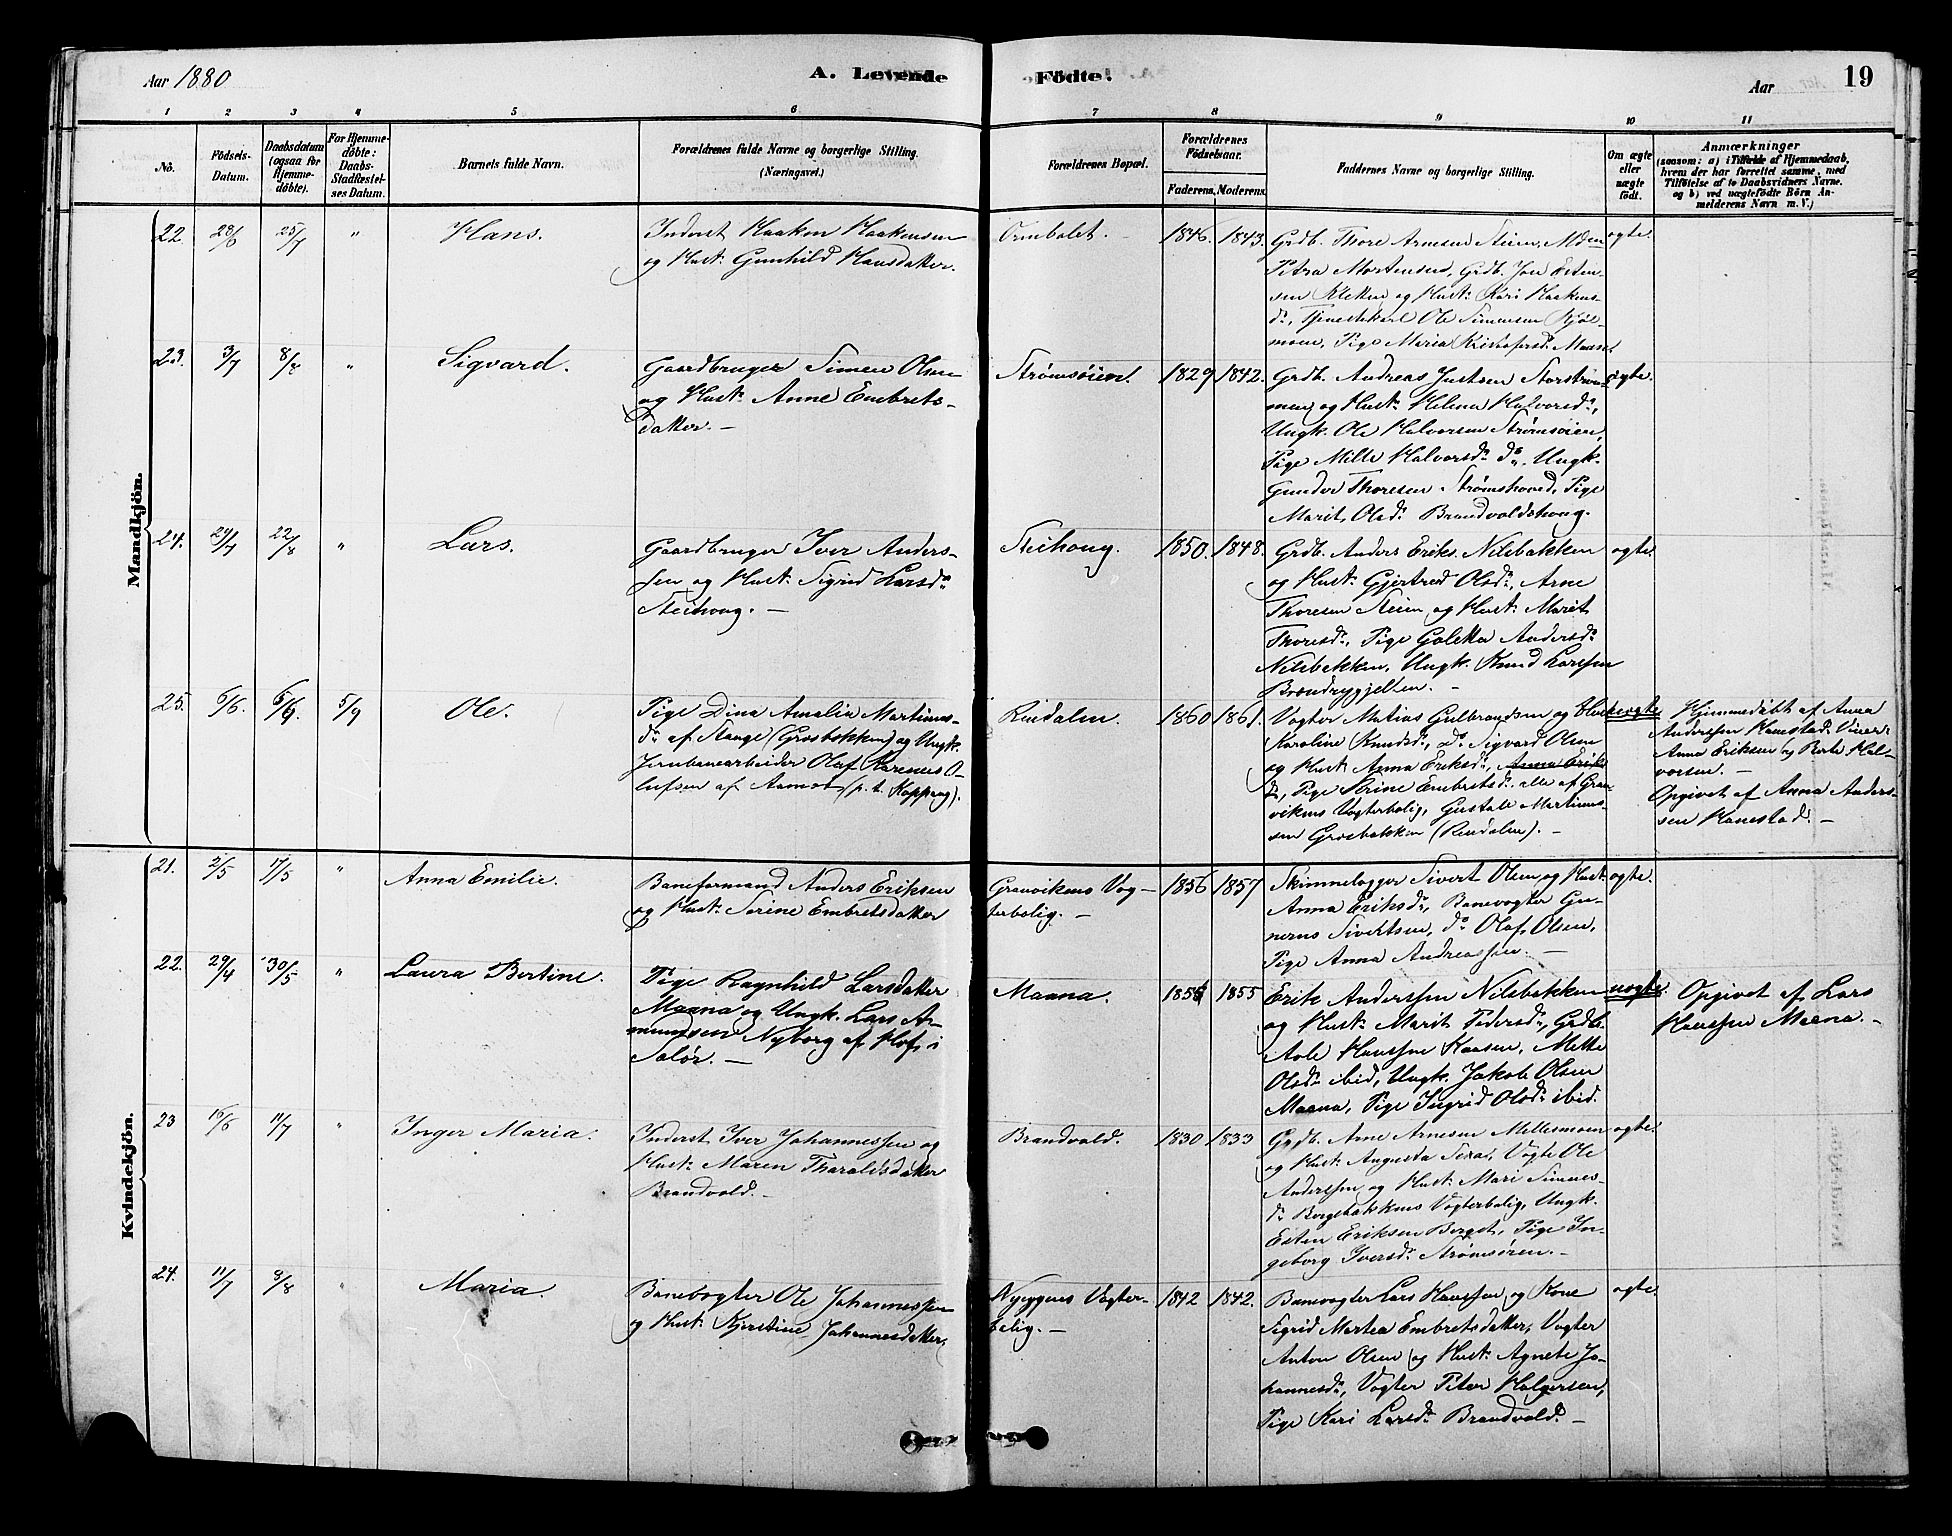 Aar 1880
A. Levende Födte.
Aar
19
1 2 3 4 5 6 7 8 9 10 11
No.
Födsels-
Datum.
Daabsdatum
(ogsaa for
Hjemme-
döbte).
For Hjemme-
döbte:
Daabs-
Stadfæstel-
ses Datum.
Barnets fulde Navn.
Forældrenes fulde Navne og borgerlige Stilling.
(Næringsvei.)
Forældrenes Bopæl.
Forældrenes
Födselsaar.
Faderens. Moderens.
Faddernes Navne og borgerlige Stilling.
Om ægte
eller
uægte
født.
Anmærkninger
(saasom: a) i Tilfælde af Hjemmedaab,
hvem der har forrettet samme, med
Tilföielse af to Daabsvidners Navne.
og b) ved uægtefödte Börn An-
melderens Navn m. V.)
Mandkjön.
22. 28/6 25/7 " Hans.
Inderst Haaken Haakensen
og Hust. Gunhild Hansdatter.
1846. 1843.
Grdb. Thore Arnesen Steien,
Petra Mortensen, Grdb. Jon Esten-
sen Kletten og Hust. Kari Haakens-
d., Tjenestekarl Ole Simensen
moen, Pige Maria
ægte.
23. 3/7 8/8 " Sigvard.
Gaardbruger Simen Olsen
og Hust. Anne Embrets-
datter. —
Strømsøien.
1829 1842.
Grdb. Andreas Justsen Storstrøm-
men og Hust. Helena Halvorsd.,
Ungk. Ole Halvorsen Strømsøien,
Pige Mille Halvorsd. do., Ungk.
Gunder Thoresen Strømshoved, Pige
Marit Olsd. Brandvoldshoug.
ægte.
24. 24/7 22/8 " Lars.
Gaardbruger Iver Anders-
sen og Hust. Sigrid Larsd.
Steihoug. —
Steihoug.
1850. 1848.
Grdb. Anders Eriks. Nilsbakken
og Hust. Gjertrud Olsd., Arne
Thoresen Steien og Hust. Marit
Thoresd., Pige Goletta Andersd.
Nilsbakken, Ungk. Knud Larssen
ægte.
25. 6/6. 6/6. 5/9 Ole.
Pige Dina Amalia Martinus-
d. af Stange (Grosbakken) og Ungk.
Jernbanearbeider Olaf Karenus O-
lufsen af Aamot (p. t. Koppang).
Rendalen
1860 1861.
Vogter Matias Gulbrandsen og Hust.
Karoline Knudsd., Do. Sigvard Olsen
og Hust. Anna Eriksd., Anna Eriks
d., Pige Strine Embretsd. alle af Gran-
vikens Vogterbolig, Gustav Martinus-
sen Grosbakken (Rendalen). —
uægte
Hjemmedøbt af Anna
Anderssen Hanestad. Vidner:
Anna Eriksen og Berte Hal-
vorsen. —
Opgivet af Anna Anders-
sen Hanestad. —
Kvindekjön.
21. 2/5 17/5 " Anna Emilie.
Baneformand Anders Eriksen
og Hust. Serine Embretsdatter
Granvikens Vog-
terbolig. —
1856 1857
Sivert Olsen og Hust.
Anna Eriksd., Banevogter Gu-
nerus Sivertsen, do. Olaf Olsen,
Pige Anna Andreassen. —
ægte.
22. 29/4 30/5 " Laura Bertine.
Pige Ragnhild Larsdatter
Maana og Ungk. Lars A-
mundsen Nyborg af Hof i
Solør. —
Maana.
1855
Erik Anderssen Nilsbakken
og Hust. Marit Pedersd., Grdb.
Aole Hanssen Kaasen, Mette
Olsd. ibid, Ungk. Jakob Olsen
Maana, Pige Ingrid Olsd. ibid.
uægte
Opgivet af Lars
Hanssen Maana. —
23 16/6 11/7 " Inger Maria.
Inderst Iver Johannessen og
Hust. Maren Tharaldsdatter
Brandvold. —
Brandvold.
1830 1833
Grdb. Arne Arnesen Mellesmoen
og Hust. Augusta Vogte Ole
Anderssen og Hust. Mari Simens-
d. Borgebakkens Vogterbolig, Ungk.
Esten Eriksen Berget, Pige In-
geborg Iversd. Strømsøien. —
ægte.
24. 11/7 8/8 " Maria
Banevogter Ole Johannessen
og Hust. Kjerstine Johannesdatter.
Nyeggens Vogter-
bolig. —
1842 1842.
Banevogter Lars Hanssen og Kone
Sigrid Martea Embretsdatter, Vogter
Anton Olsen og Hust. Agnete Jo-
hannesd., Vogter Peter Halgersen,
Pige Kari Larsd. Brandvold. —
ægte.